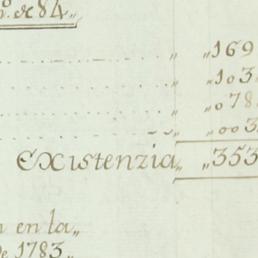 º. de 84„
„ „169
„ „103
„ „078
„ „003
Existenzia„ „353
n en la„
de 1783„